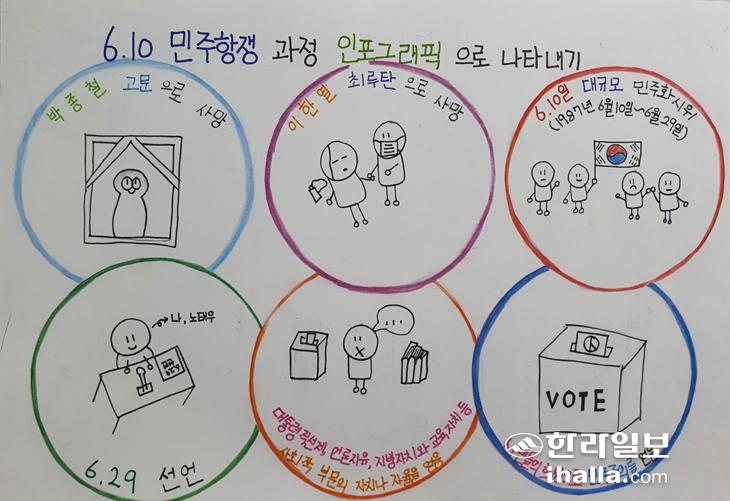 6.10 민주항쟁 과정 인포그래픽 으로 나타내기
박종철 고문으로 사망
이한열 최루탄으로 사망
6.10일 대규모 민주화시위
(1987년 6월 10일~6월 29일)
나, 노태우
6.29
6.29 선언
...
대통령 직선제, 언론자유, 지방자치와 교육자치 등
사회 각 부문의 자치나 자율을 얻음
VOTE
한라일보
ihalla.com